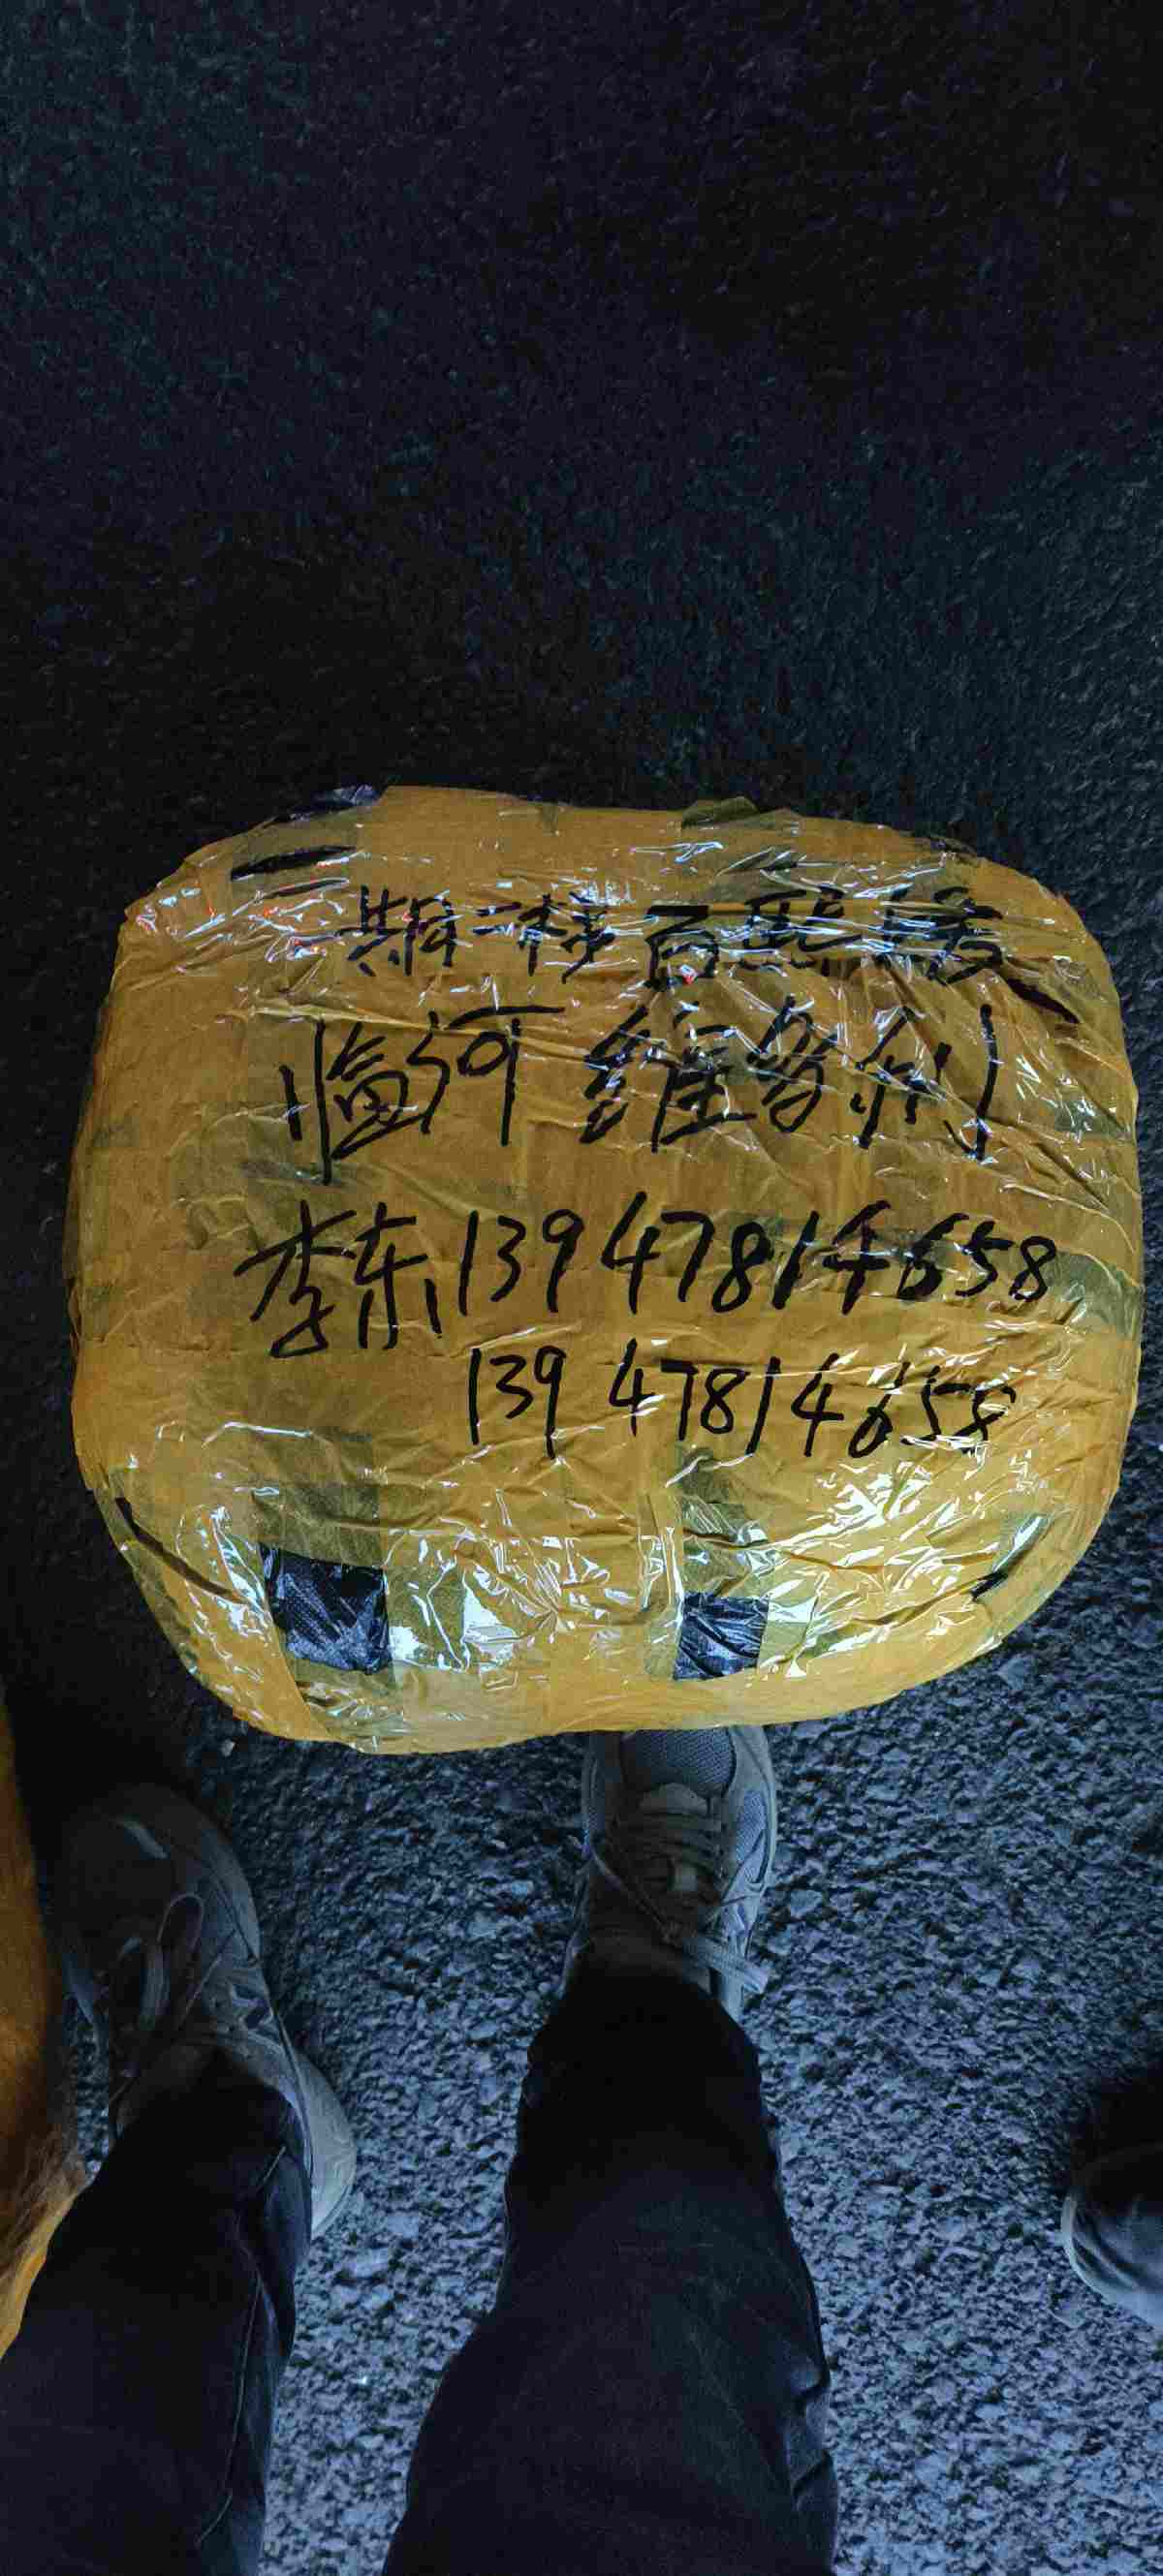 期一楼百熙缘
临河维多利
李东13947814658
13947814658